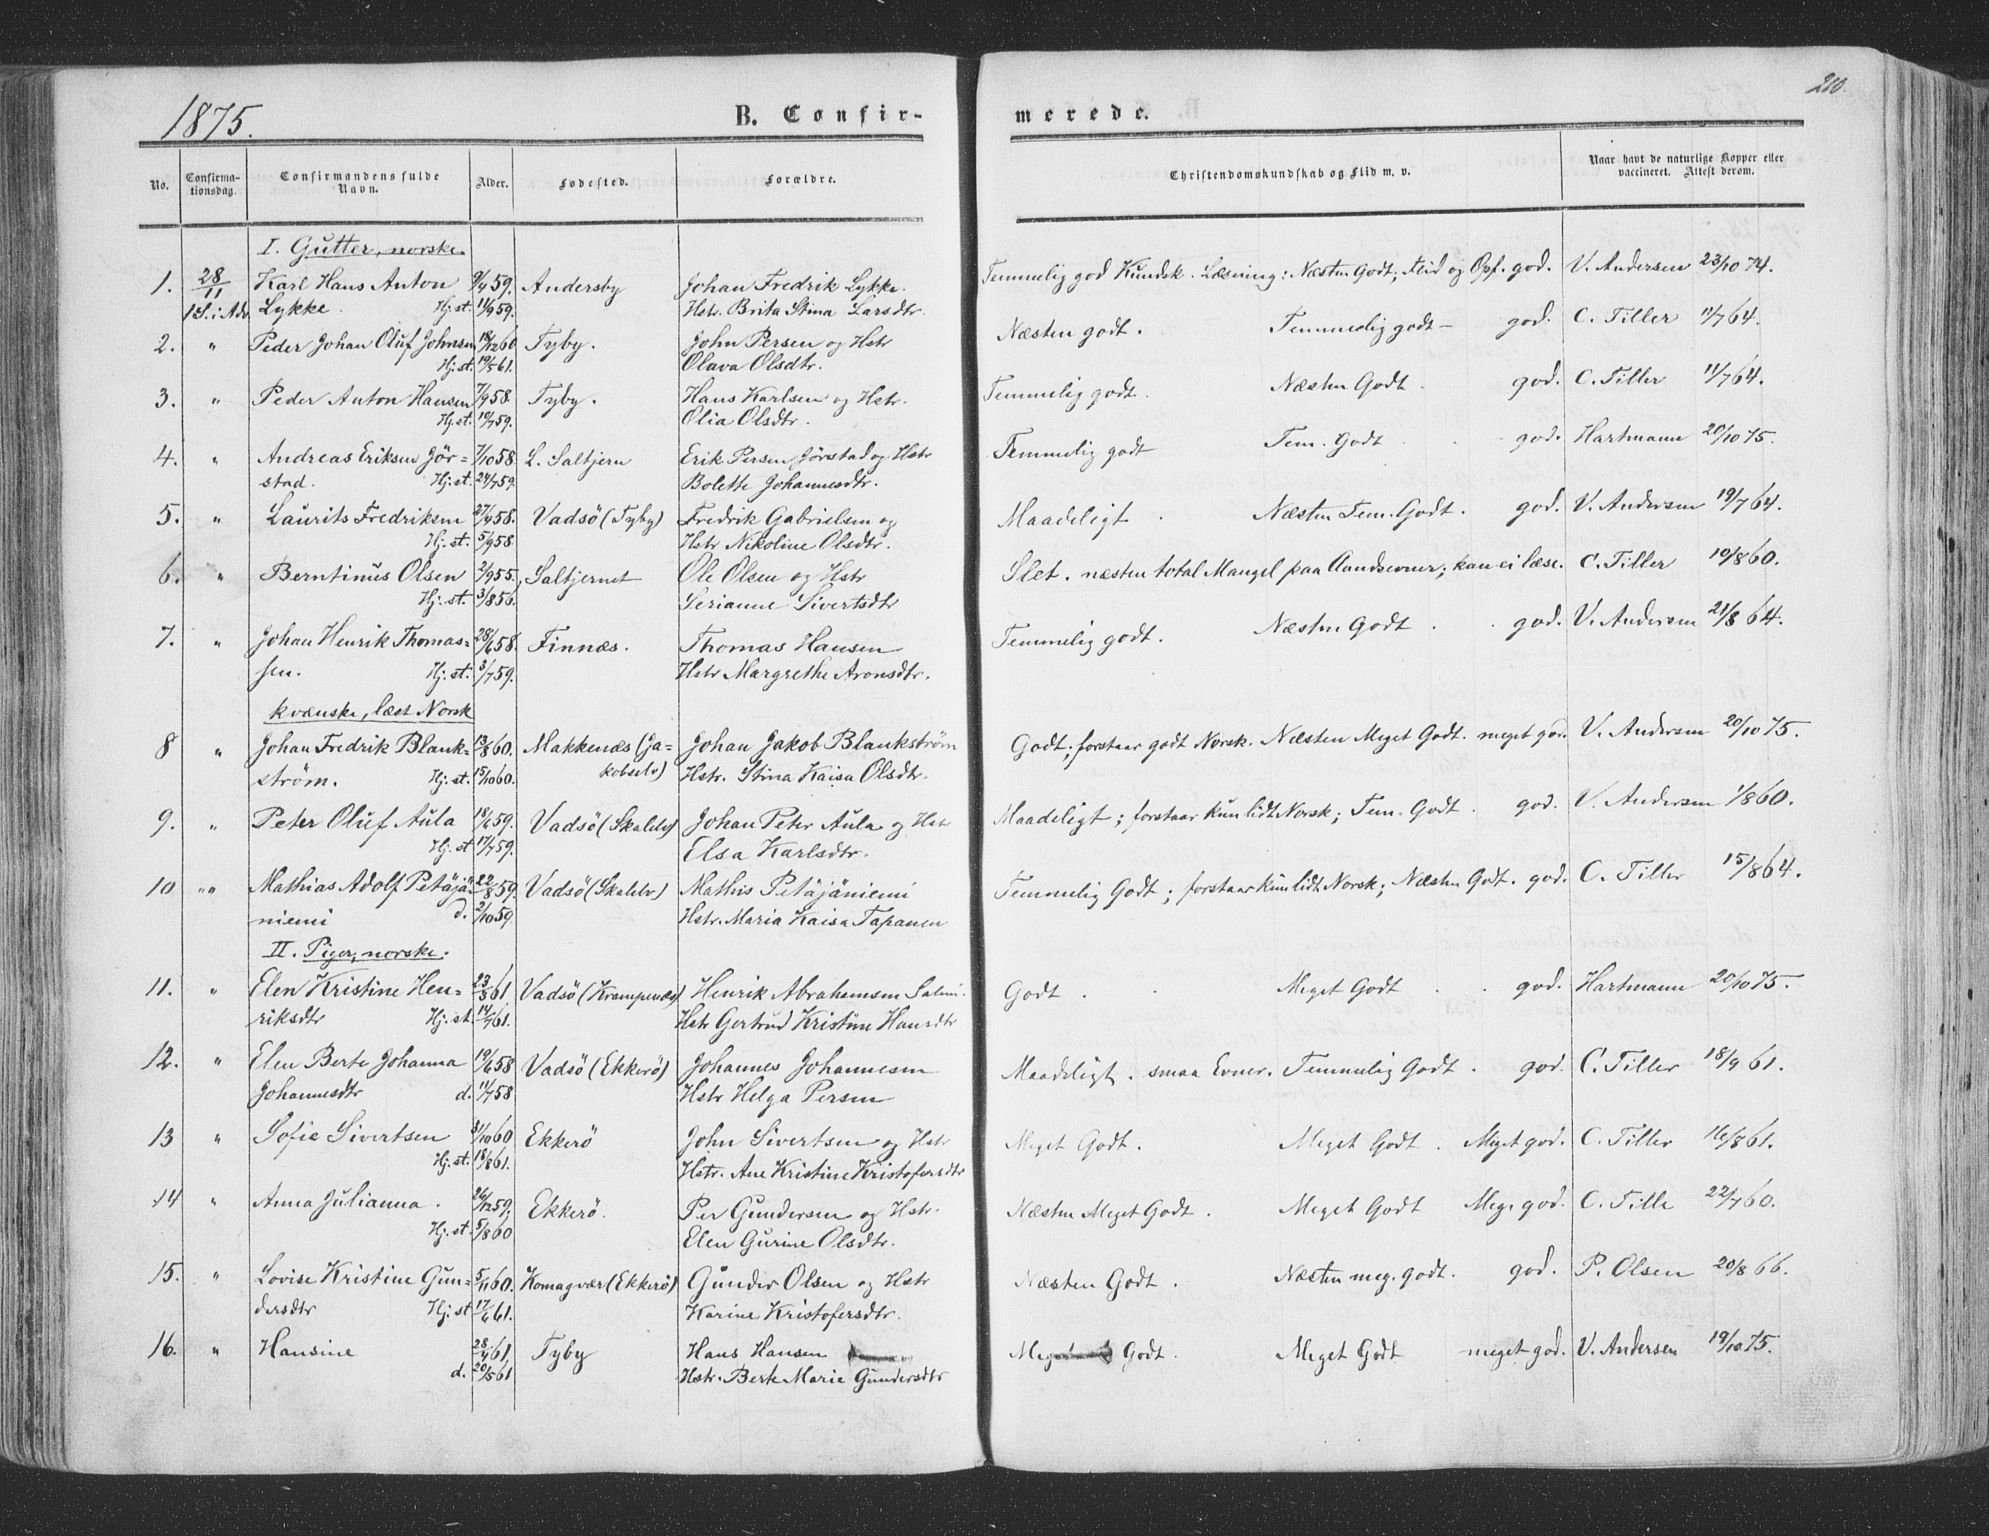 1875.
B. Confir-
merede.
210.
No.
Confirma-
tionsdag.
Confirmandens fulde
Navn.
Alder.
Fødested.
Forældre.
Christendomskundskab og Flid m. v.
Naar havt de naturlige Kopper eller
vaccineret. Attest derom.
I. Gutter, norske.
1. 28/11 Karl Hans Anton 9/4 59. Andersby Johan Fredrik Lykke. Temmelig god Kundsk. Læsning: Næsten Godt; Flid og Opf. god. V. Andersen 23/10 74.
1 S. i Adv. Lykke. Hj. st. 11/9 59. Hstr. Brita Stina Larsdtr.
2. " Peder Johan Oluf Johnsen 18/12 60 Tyby. John Persen og Hstr Næsten godt. Temmelig godt - god. C. Tiller 11/7 64.
Hj. st. 19/5 61. Olava Olsdtr.
3. " Peder Anton Hansen 7/9 58. Tyby. Hans Karlsen og Hstr. Temmelig godt. Næsten Godt. god. C. Tiller 11/7 64.
Hj. st. 10/7 59. Olia Olsdtr.
4. " Andreas Eriksen Jör= 7/10 58. L. Saltjern Erik Persen Jörstad og Hstr Temmelig godt Tem. Godt. god. Hartmann 20/10 75.
stad. Hj. st. 24/7 59. Bolette Johannesdtr.
5. " Laurits Fredriksen 27/4 58. Vadsö (Tyby) Fredrik Gabrielsen og Maadeligt. Næsten Tem. Godt. god. V. Andersen 19/7 64.
Hj. st. 5/9 58. Hstr Nikoline Olsdtr.
6. " Berntinus Olsen 2/9 55. Saltjernet Ole Olsen og Hstr Slet. næsten total Mangel paa Aandsevner; kan ei læse. C. Tiller 10/8 60.
Hj. st. 3/8 56. Serianne Sivertsdtr
7. " Johan Henrik Thomas= 28/6 58. Finnæs. Thomas Hansen Temmelig godt. Næsten Godt. god. V. Andersen 21/8 64.
sen. Hj. st. 3/7 59. Hstr Margrethe Aronsdtr.
kvænske, læst Norsk
8 " Johan Fredrik Blank- 13/8 60. Makkenæs (Ja= Johan Jakob Blankström Godt; forstaar godt Norsk. Næsten Meget Godt. meget god. V. Andersen 20/10 75.
ström. Hj. st. 15/10 60. kobselv) Hstr. Stina Kaisa Olsdtr.
9. " Peter Oluf Aula 18/6 59. Vadsö (Skalelv) Johan Peter Aula og Hstr Maadeligt; forstaar kun lidt Norsk; Tem. Godt. god. V. Andersen 1/8 60.
Hj. st 17/7 59. Elsa Karlsdtr.
10 " " Mathias Adolf Petäjä= 22/8 59. Vadsö (Skalelv) Mathis Petäjäniemi Temmelig Godt; forstaar kun lidt Norsk; Næsten Godt. god. C. Tiller 15/8 64.
niemi d. 2/10 59. Hstr. Maria Kaisa Tapanen
II. Piger, norske.
11. " Elen Kristine Hen= 23/3 61. Vadsö (Krampenæs) Henrik Abrahamsen Salmi. Godt. Meget Godt. god. Hartmann 20/10 75.
riksdtr Hj. st. 14/7 61. Hstr Gertrud Kristine Hansdtr
12. " Elen Berte Johanna 19/6 58 Vadsö (Ekkerö) Johannes Johannesen Maadeligt. smaa Evner. Temmelig Godt. god. C. Tiller 18/9 61.
Johannesdtr d. 11/7 58 Hstr Helga Persen
13 " Sofie Sivertsen 31/10 60 Ekkerö John Sivertsen og Hstr Meget Godt. Meget Godt. Meget god. C. Tiller 16/8 61.
Hj. st. 18/8 61. Hstr. Ane Kristine Kristofersdtr
14 " Anna Julianna. 26/12 59, Ekkerö. Per Gundersen og Hstr. Næsten Meget Godt. Meget Godt Meg. god. C. Tille 22/7 60.
Hj. st. 5/8 60 Elen Gurine Olsdtr.
15. " Lovise Kristine Gun= 5/11 60. Komagvær (Ekkerö) Gunder Olsen og Hstr Næsten Godt. Næsten meg. godt. god. P. Olsen 20/8 66.
dersdtr Hj. st 17/6 61. Karine Kristofersdtr.
16. " Hansine 28/4 61, Tyby Hans Hansen Meget Godt. Meget Godt meget god. V. Andersen 19/10 75.
d. 20/5 61 Hstr. Berte Marie Gundersdtr